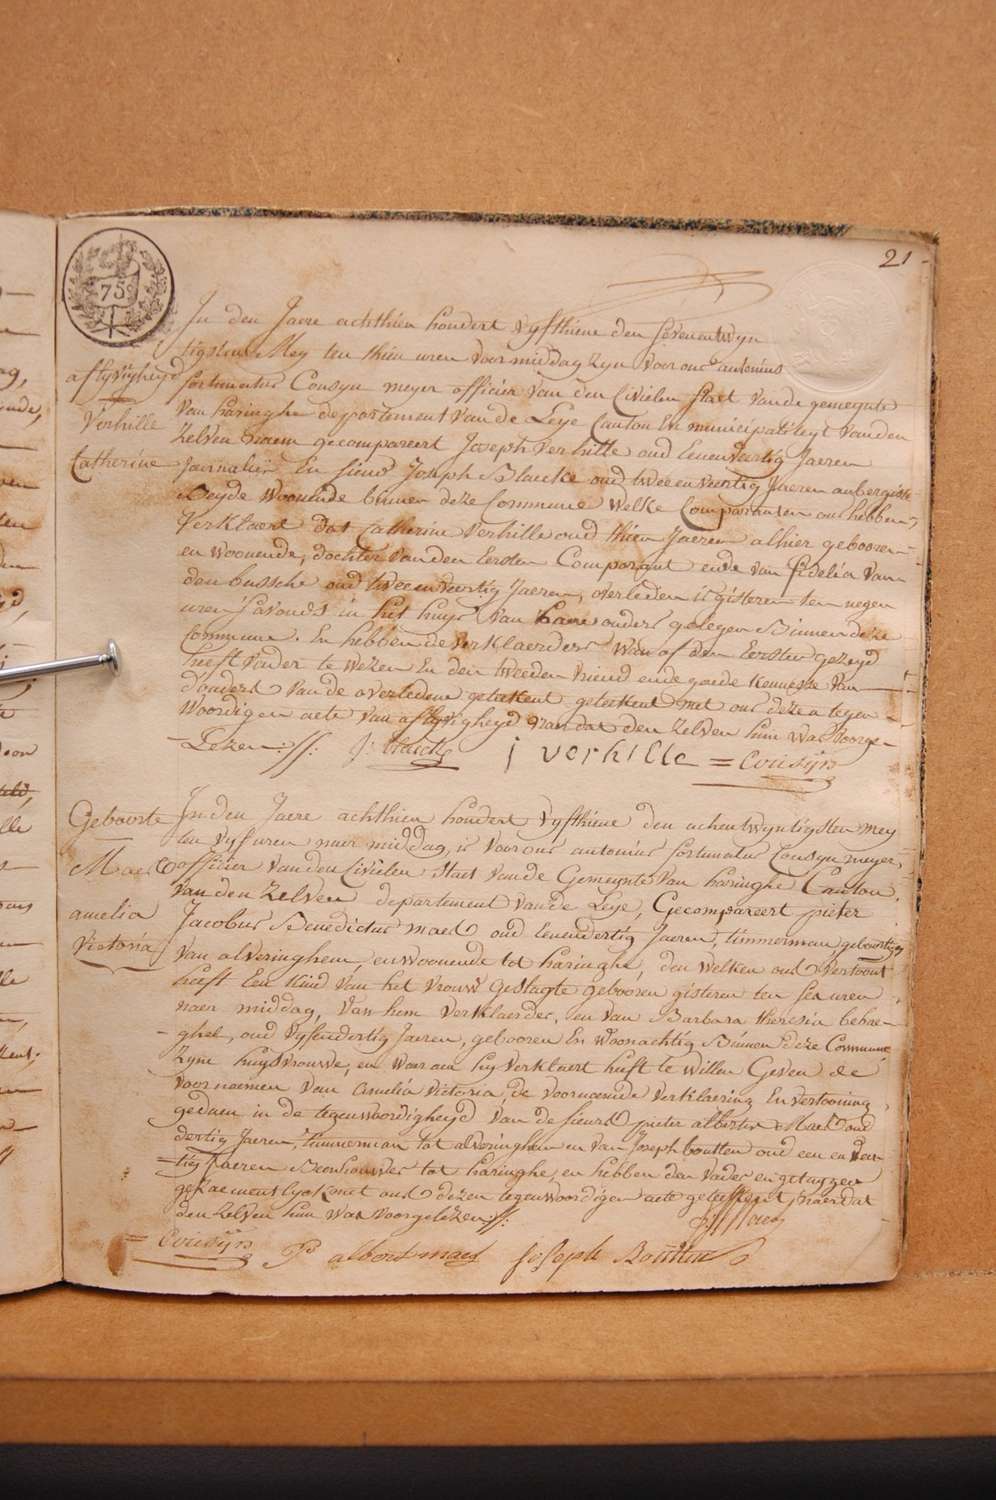 21
75
In den Jaere achthien hondert vyfthiene den sevenentwyn
tigsten Mey ten thien uren voormiddag zyn voor ons antonius
aflyvigheyd
fortunatus Cousyn meyer officier van den Civielen staet vande gemeynte
Verhille
van haringhe departement van de Leye Canton En municipaliteyt van den
Catherine
zelven naem gecompareert Joseph Verhille oud Eenenveertig Jaeren
Journalier En sieur Joseph Blaecke oud twee en veertig Jaeren aubergiste
Beyde Woonende binnen deze Commune Welke Comparanten ons hebben
Verklaert dat Catherine Verhille oud thien Jaeren alhier gebooren
en woonende, dochter van den Eersten Comparant ende van Fidelia van
den bussche oud tweeenveertig Jaeren, overleden is gisteren ten negen
uren s'avonds in het huys van haere ouders gelegen Binnen deze
Commune. En hebben de verklaerders Waer of den Eersten gezeyd
heeft vader te wezen En den tweeden vriend ende goede kennesse van
d'ouders van de overledene getekent met ons dezen tegen
Woordigen acte van aflyvigheyd naer dat den zelven hun was voorge-
Lezen J: Blaecke j verhille = Cousijn
Geboorte
In den Jaere achthien hondert vyfthiene den achentwyntigsten mey
ten vyf uren naer middag, is voor ons antonius fortunatus Cousyn meyer
Maes
officier van den Civielen staet vande Gemeynte van haringhe Canton
van den zelven departement van de Leye, Gecompareert pieter
amelia
Jacobus Benedictus maes oud Eenendertig Jaeren, timmerman geboortig
Victoria
van alveringhem, en woonende tot haringhe, den welken ons vertoont
heeft Een kind van het vrouw geslagte gebooren gisteren ten ses uren
naer middag, van hem verklaerder, en van Barbara theresia behae-
ghel, oud vyfendertig Jaeren, gebooren En Woonachtig Binnen deze Commune
zyne huysvrouwe, en waer aen hy verklaert heeft te willen Geven de
voornaemen van amelia victoria, de voornoemde verklaering En vertooning
gedaen in de tegenwoordigheyd van de sieurs pieter albertus Maes oud
dertig Jaeren, timmerman tot alveringhem en van Joseph boutten oud een en der-
tig Jaeren tot haringhe, en hebben den vader en getuygen
met ons dezen tegenwoordigen acte geteekent naer dat
den zelven hun was voorgelezen
= Cousijn P albert maes Joseph Boutten